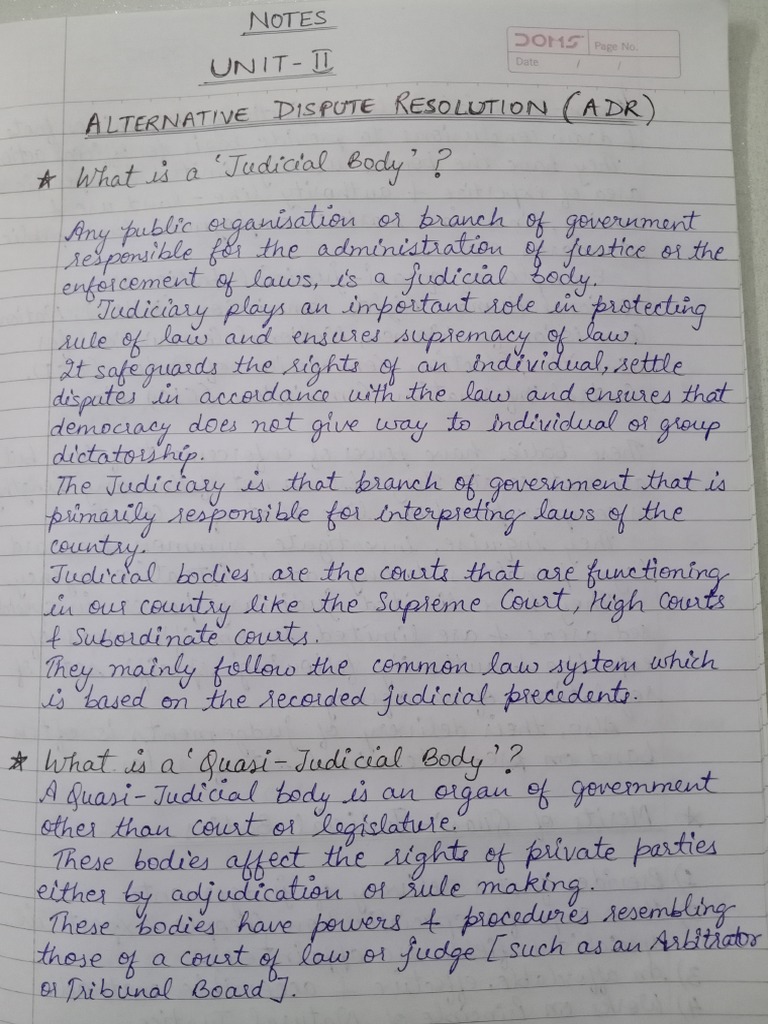 NOTES
DOMS
Page No.
Date / /
UNIT-II
ALTERNATIVE DISPUTE RESOLUTION (ADR)
★ What is a 'Judicial Body'?
Any public organisation or branch of government
responsible for the administration of justice or the
enforcement of laws, is a judicial body.
Judiciary plays an important role in protecting
rule of law and ensures supremacy of law.
It safeguards the rights of an individual, settle
disputes in accordance with the law and ensures that
democracy does not give way to individual or group
dictatorship.
The Judiciary is that branch of government that is
primarily responsible for interpreting laws of the
country.
Judicial bodies are the courts that are functioning
in our country like the Supreme Court, High Courts
& Subordinate courts.
They mainly follow the common law system which
is based on the recorded judicial precedents.
★ What is a 'Quasi-Judicial Body'?
A Quasi-Judicial body is an organ of government
other than court or legislature.
These bodies affect the rights of private parties
either by adjudication or rule making.
These bodies have powers & procedures resembling
those of a court of law or judge [such as an Arbitrator
or Tribunal Board].